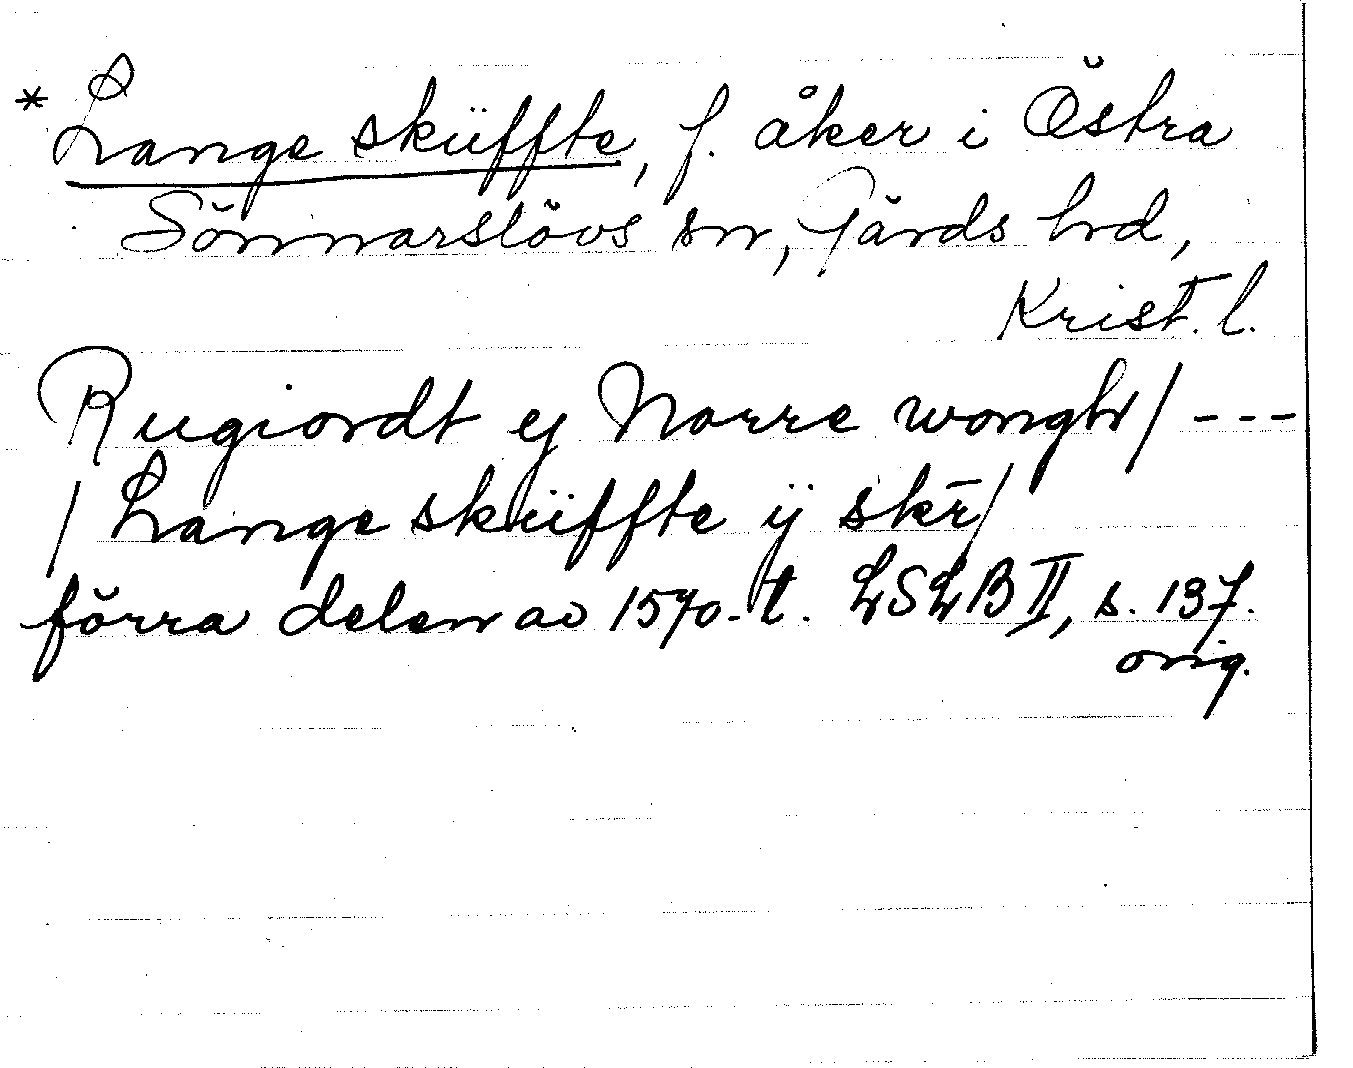 *Lange sküffte, f. åker i Östra
Sönnarslövs sn, Gärds hd,
Krist. l.
Rugiordt ej Norre wongh/ ---
/ Lange sküffte ij skr̄/
förra delen av 1570-t. LSLB II, s. 137.
orig.